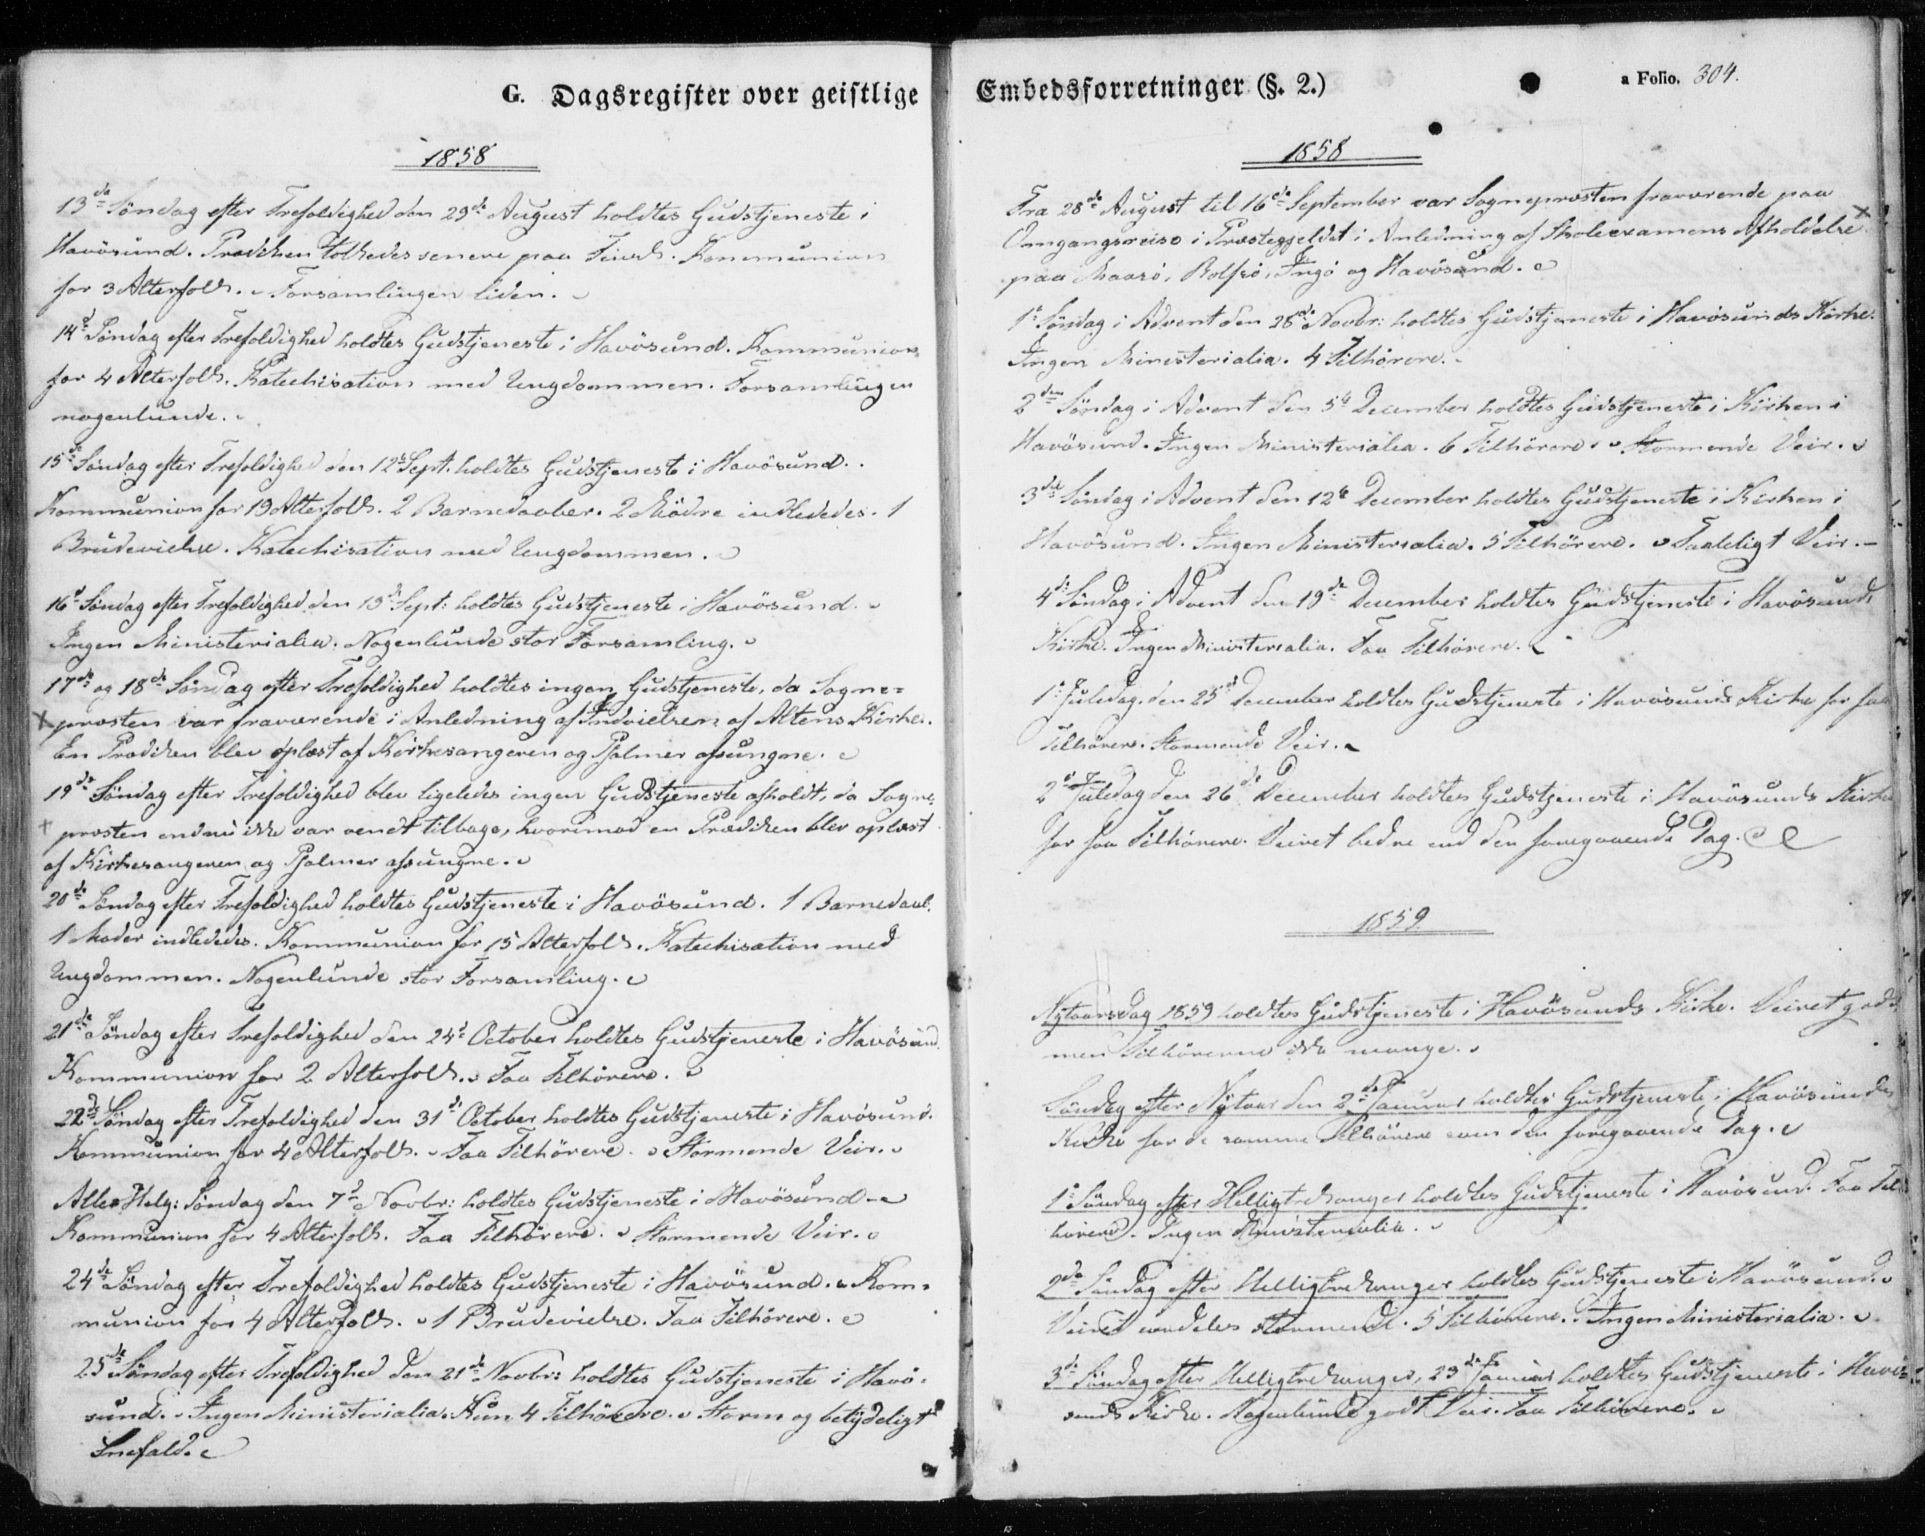 G. Dagsregister over geistlige
1858
13de Søndag efter Trefoldighed den 29de August holdtes Gudstjeneste i
Havösund. Prædiken tolkedes senere paa Finsk. Kommunion
for 3 Alterfolk. Forsamlingen liden.
14de Søndag efter Trefoldighed holdtes Gudstjeneste i Havösund. Kommunion
for 4 Alterfolk. Katechisation med Ungdommen. Forsamlingen
nogenlunde.
15de Søndag efter Trefoldighed den 12te Sept. holdtes Gudstjeneste i Havösund.
Kommunion for 19 Alterfolk. 2 Barnedaaber. 2 Mödre indlededes. 1
Brudevielse. Katechisation med Ungdommen.
16de Søndag efter Trefoldighed den 19de Sept: holdtes Gudstjeneste i Havösund.
Ingen Ministerialia. Nogenlunde stor Forsamling.
17de og 18de Søndag efter Trefoldighed holdtes ingen Gudstjeneste, da Sogne-
x præsten var fraværende i Anledning af Indvielsen af Altens Kirke.
En Prædiken blev oplæst af Kirkesangeren og Psalmer afsungne.
19de Søndag efter Trefoldighed blev ligeledes ingen Gudstjeneste afholdt, da Sogne-
+ præsten endnu ikke var vendt tilbage, hvorimod en Prædiken blev oplæst
af Kirkesangeren og Psalmer afsungne.
20de Søndag efter Trefoldighed holdtes Gudstjeneste i Havösund. 1 Barnedaab.
1 Moder indlededes. Kommunion for 15 Alterfolk. Katechisation med
Ungdommen. Nogenlunde stor Forsamling.
21de Søndag efter Trefoldighed den 24de October holdtes Gudstjeneste i Havösund.
Kommunion for 2 Alterfolk. Faa Tilhörere.
22de Søndag efter Trefoldighed den 31de October holdtes Gudstjeneste i Havösund.
Kommunion for 4 Alterfolk. Faa Tilhörere. Stormende Veir.
Alle Helg: Søndag den 7de Novbr: holdtes Gudstjeneste i Havösund
Kommunion for 4 Alterfolk. Faa Tilhörere. Stormende Veir.
24de Søndag efter Trefoldighed holdtes Gudstjeneste i Havösund. Kom-
munion for 4 Alterfolk. 1 Brudevielse. Faa Tilhörere.
25de Søndag efter Trefoldighed den 21de Novbr: holdtes Gudstjeneste i Havö-
sund. Ingen Ministerialia. Kun 4 Tilhörere. Storm og betydeligt
Snefald.
Embedsforretninger (§. 2.)
a Folio. 304.
1858
Fra 28de August til 16de September var Sognepræsten fraværende paa
Omgangsreise i Præstegjeldet i Anledning af Skoleexamens Afholdelse x
paa Maasö, Rolfsö, Ingö og Havösund.
1ste Søndag i Advent den 28de Novbr: holdtes Gudstjeneste i Havösunds Kirke.
Ingen Ministerialia. 4 Tilhörere.
2den Søndag i Advent den 5te December holdtes Gudstjeneste i Kirken i
Havösund. Ingen Ministerialia. 6 Tilhörere. Stormende Veir.
3die Søndag i Advent den 12te December holdtes Gudstjeneste i Kirken i
Havösund. Ingen Ministerialia. 5 Tilhörere. Taaleligt Veir.
4de Søndag i Advent den 19de December holdtes Gudstjeneste i Havösunds
Kirke. Ingen Ministerialia. Faa Tilhörere.
1ste Juledag den 25de December holdtes Gudstjeneste i Havösunds Kirke for faa
Tilhörere. Stormende Veir.
2den Juledag den 26de December holdtes Gudstjeneste i Havösunds Kirke
for faa Tilhörere. Veiret bedre end den foregaaende Dag.
1859
Nytaarsdag 1859 holdtes Gudstjeneste i Havösunds Kirke. Veiret godt
men Tilhörerne ikke mange.
Søndag efter Nytaar den 2den Januar holdtes Gudstjeneste i Havösunds
Kirke for de samme Tilhörere som den foregaaende Dag.
1ste Søndag efter Helligtrekonger holdtes Gudstjeneste i Havösund. Faa Til-
hörere. Ingen Ministerialia.
2den Søndag efter Helligtrekonger holdtes Gudstjeneste i Havösund.
Veiret stormende. 5 Tilhörere. Ingen Ministerialia.
3die Søndag efter Helligtrekonger, 23de Januar holdtes Gudstjeneste i Havö-
sunds Kirke. Nogenlunde godt Veir. Faa Tilhörere.